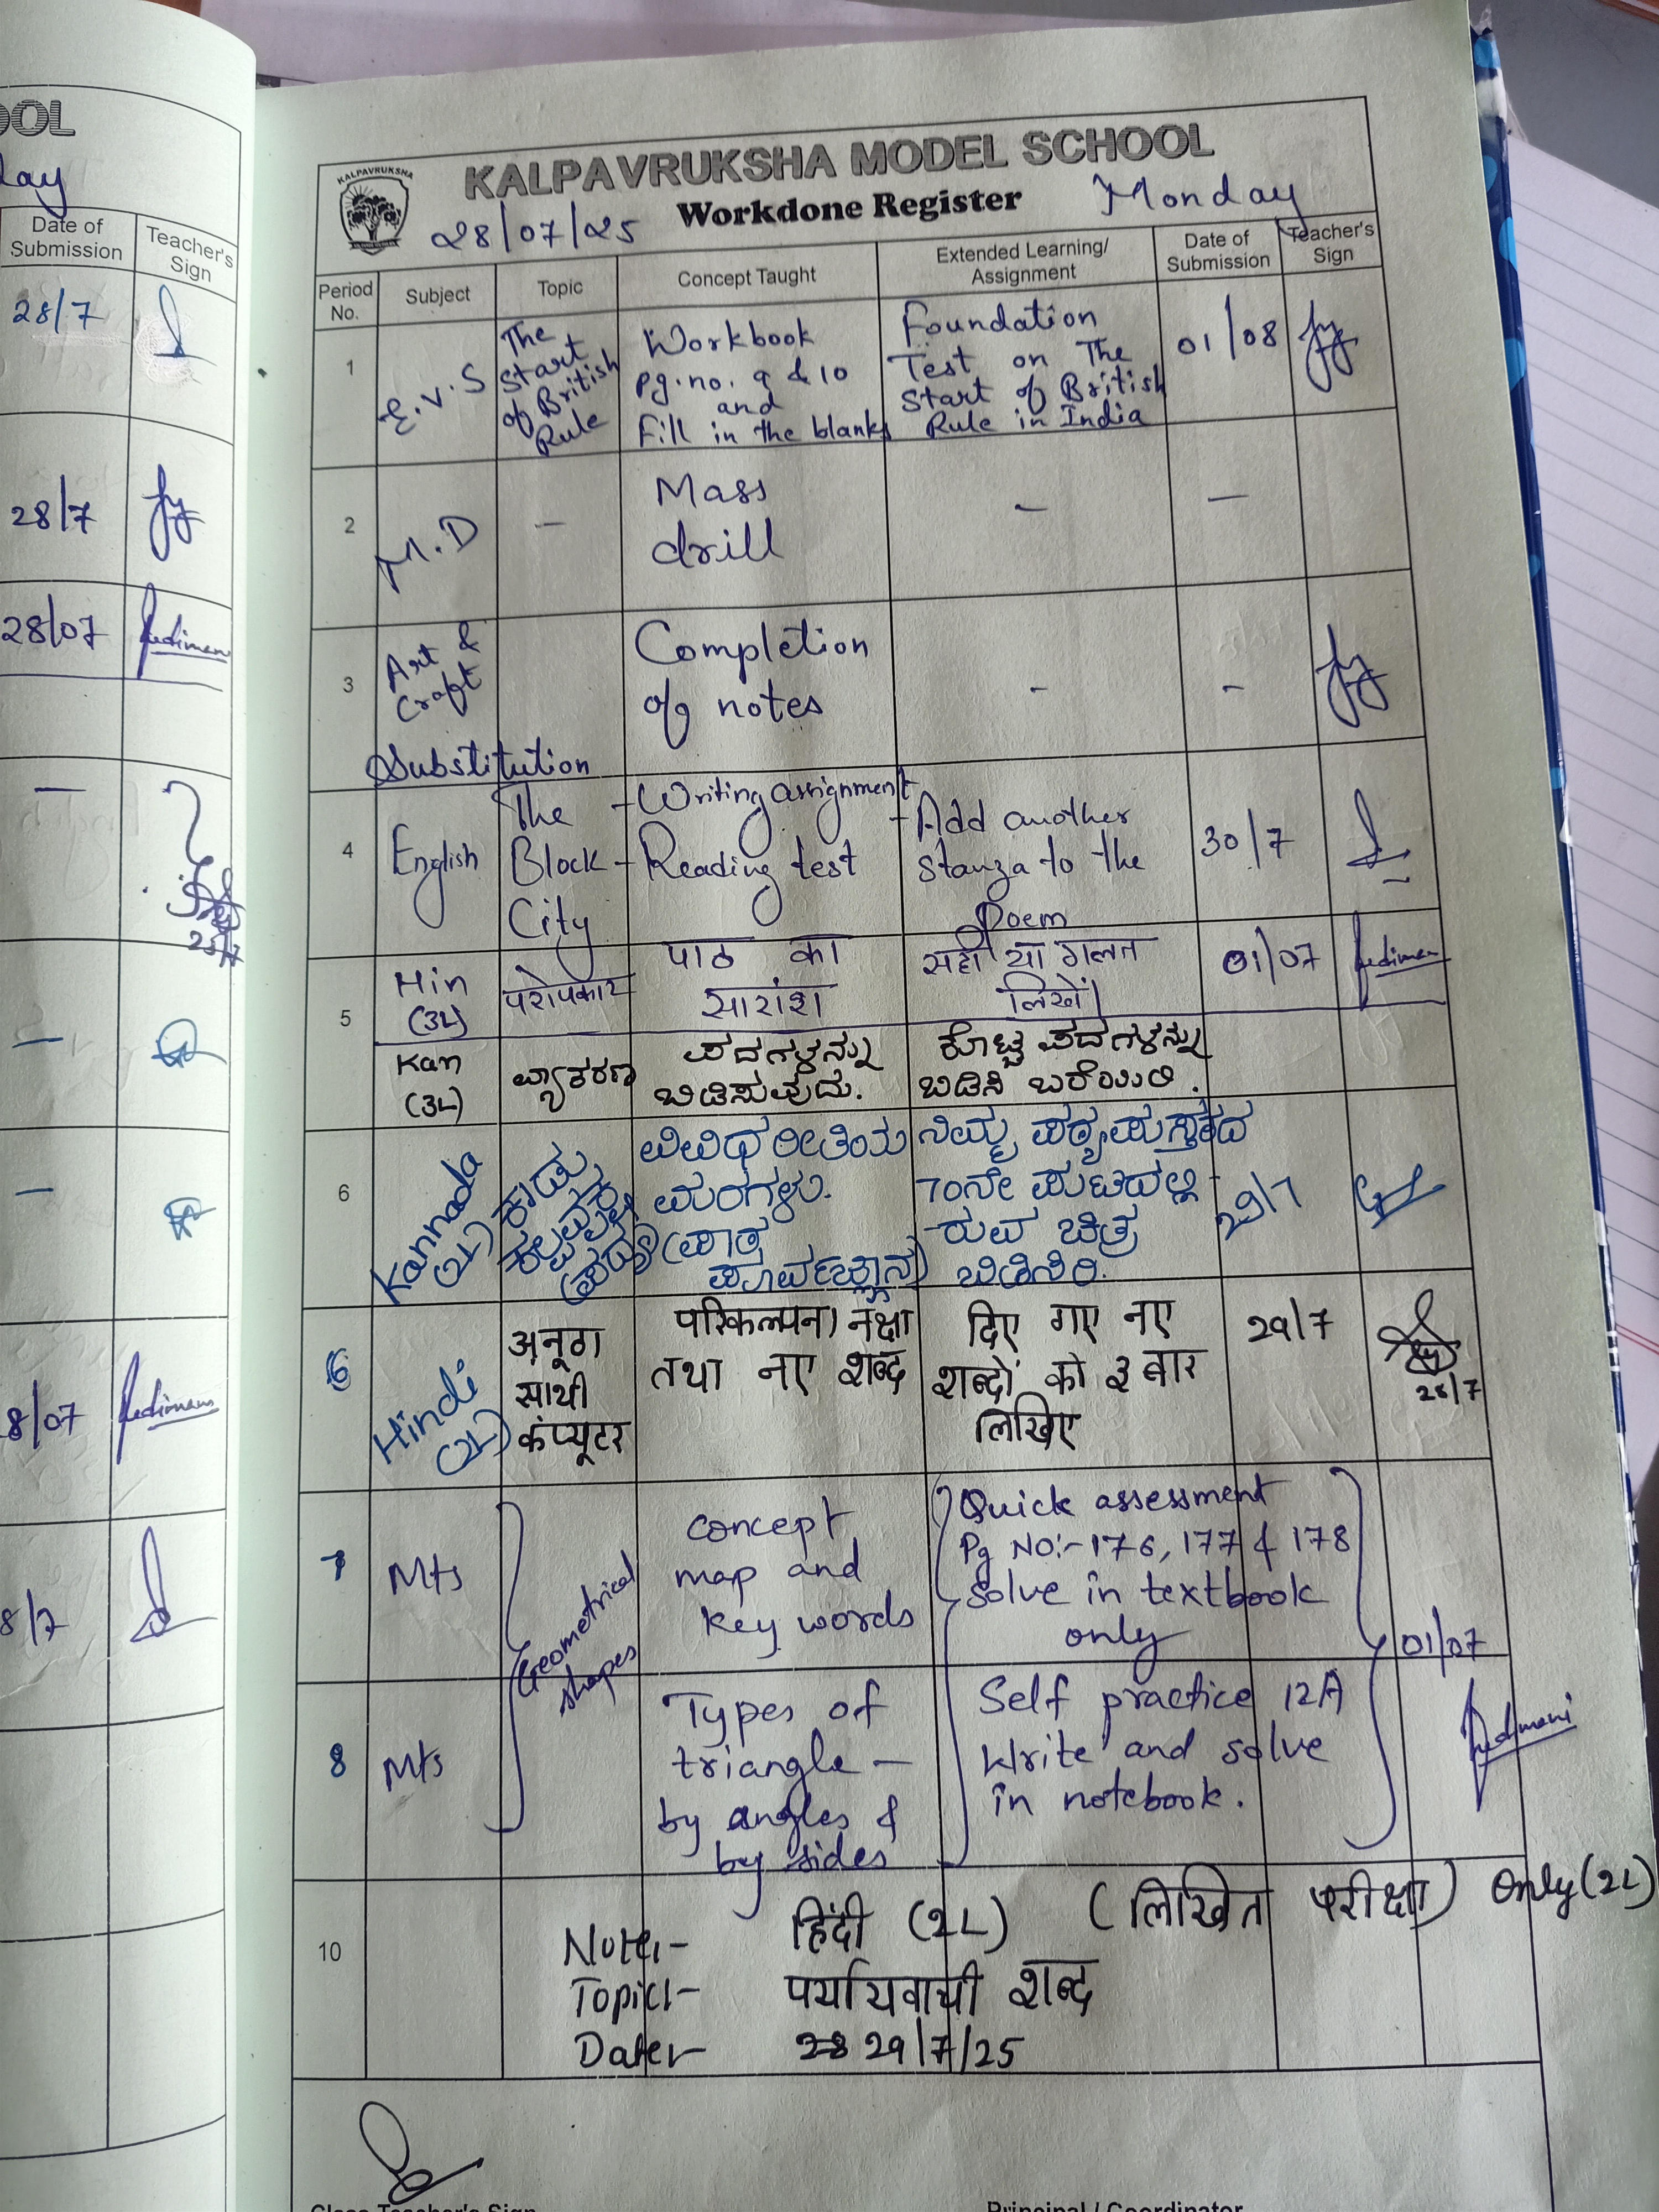 OOL
day
Date of Submission
Teacher's Sign
28/7
28/7
28/07
25/7
8/07
8/7
KALPAVRUKSHA
KALPAVRUKSHA MODEL SCHOOL
28/07/25 Workdone Register Monday
Period No.
Subject
Topic
Concept Taught
Extended Learning/ Assignment
Date of Submission
Teacher's Sign
1
E.V.S
The
Start
of British
Rule
Workbook
pg.no. 9 & 10
and
Fill in the blanks
Foundation
Test on The
Start of British
Rule in India
01/08
2
M.D
—
Mass
drill
—
—
3
Art &
Craft
Completion
of notes
-
-
Substitution
4
English
The
Block
City
- Writing assignment
- Reading test
- Add another
stanza to the
Poem
30/7
5
Hin
(3L)
परोपकार
पाठ का
सारांश
सही या गलत
लिखें।
01/07
Kan
(3L)
ವ್ಯಾಕರಣ
ಪದಗಳನ್ನು
ಬಿಡಿಸುವುದು.
ಕೊಟ್ಟ ಪದಗಳನ್ನು
ಬಿಡಿಸಿ ಬರೆಯಿರಿ.
6
Kannada
(2L)
ವಿವಿಧ ರೀತಿಯ
ಮರಗಳು.
(ಪಾಠ
ಪೂರ್ವಜ್ಞಾನ)
ನಿಮ್ಮ ಪಠ್ಯಪುಸ್ತಕದ
70ನೇ ಪುಟದಲ್ಲಿ
ರುವ ಚಿತ್ರ
ಬಿಡಿಸಿರಿ.
29/7
6
Hindi
(2L)
अनूठा
साथी
कंप्यूटर
परिकल्पना नक्षा
तथा नए शब्द
दिए गए नए
शब्दों को ३ बार
लिखिए
29/7
28/7
7
Mts
Geometrical
shapes
concept
map and
key words
Quick assessment
Pg No:- 176, 177 & 178
solve in textbook
only
01/07
8
Mts
Types of
triangle —
by angles &
by sides
Self practice 12A
Write and solve
in notebook.
10
Note:- हिंदी (2L) (लिखित परीक्षा) only (2L)
Topic:- पर्यायवाची शब्द
Date:- 28 29/7/25
Class Teacher's Sign
Principal / Coordinator